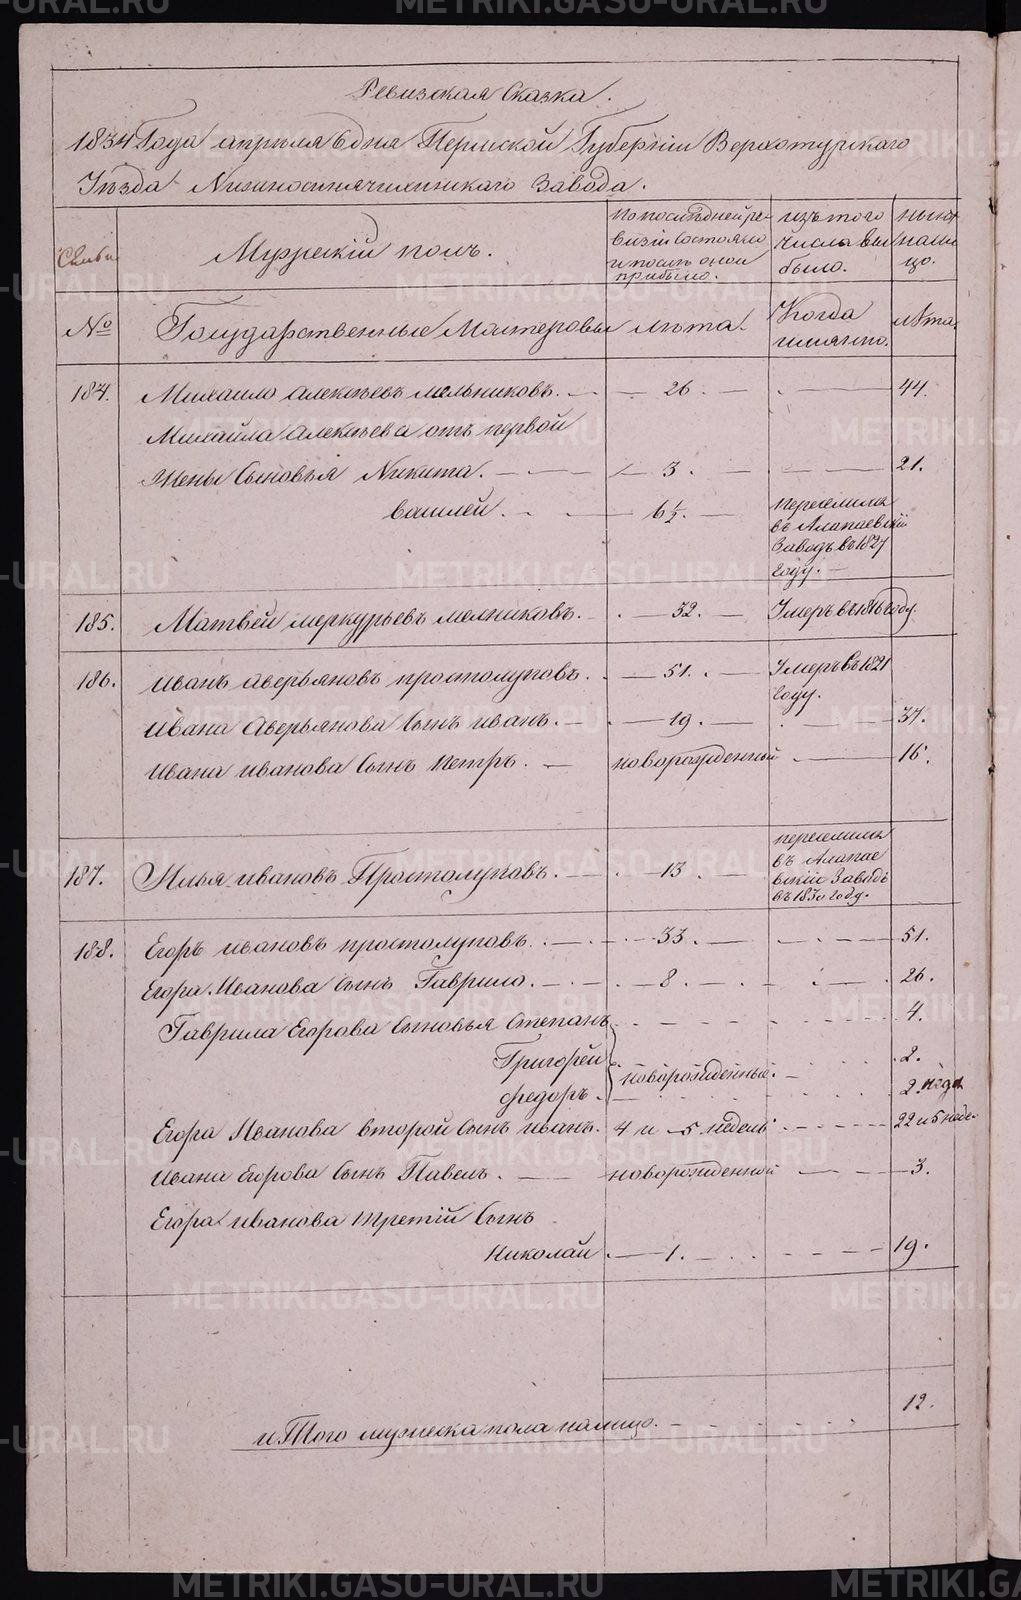 METRIKI.GASO-URAL.RU
Ревизская Сказка.
1834 Года апреля 6 дня Пермской Губернии Верхотурскаго
Уѣзда Нижносинячихинскаго Завода.
Семьи
Мужескій полъ.
По последней ре-
визіи состояло
и послѣ оной
прибыло.
изъ того
числа вы
было.
ныне
нали
цо.
№
Государственные Мастеровыи
лѣта.
Когда
имянно.
лѣта.
184. Михаило алексѣевъ мельниковъ. 26. 44.
Михайла алексѣева отъ первой
жены Сыновья Никита. 3. 21.
василей. 6½. переселился
въ Алапаевскій
Заводъ въ 1827
Году.
185. Матвей меркурьевъ мелниковъ. 32. Умеръ въ 1816 году.
186. иванъ аверьяновъ простолуповъ. 51. Умеръ въ 1821
Году.
ивана Аверьянова Сынъ иванъ. 19. 37.
ивана иванова Сынъ Петръ. новорожденный 16.
187. Илья ивановъ Простолуповъ. 13. переселился
въ Алапае
вскій Заводъ
въ 1830 году.
188. Егоръ ивановъ простолуповъ. 33. 51.
Егора Иванова Сынъ Гаврило. 8. 26.
Гаврила Егорова Сыновья Степанъ 4.
Григорей 2.
новорожденные.
федоръ. 2. неде
Егора Иванова второй Сынъ иванъ. 4 и 5 недель 22 и 5 неде
Ивана Егорова Сынъ Павелъ. новорожденной 3.
Егора иванова третій Сынъ
Николай 1. 19.
иТого мужеска пола налицо. 12.